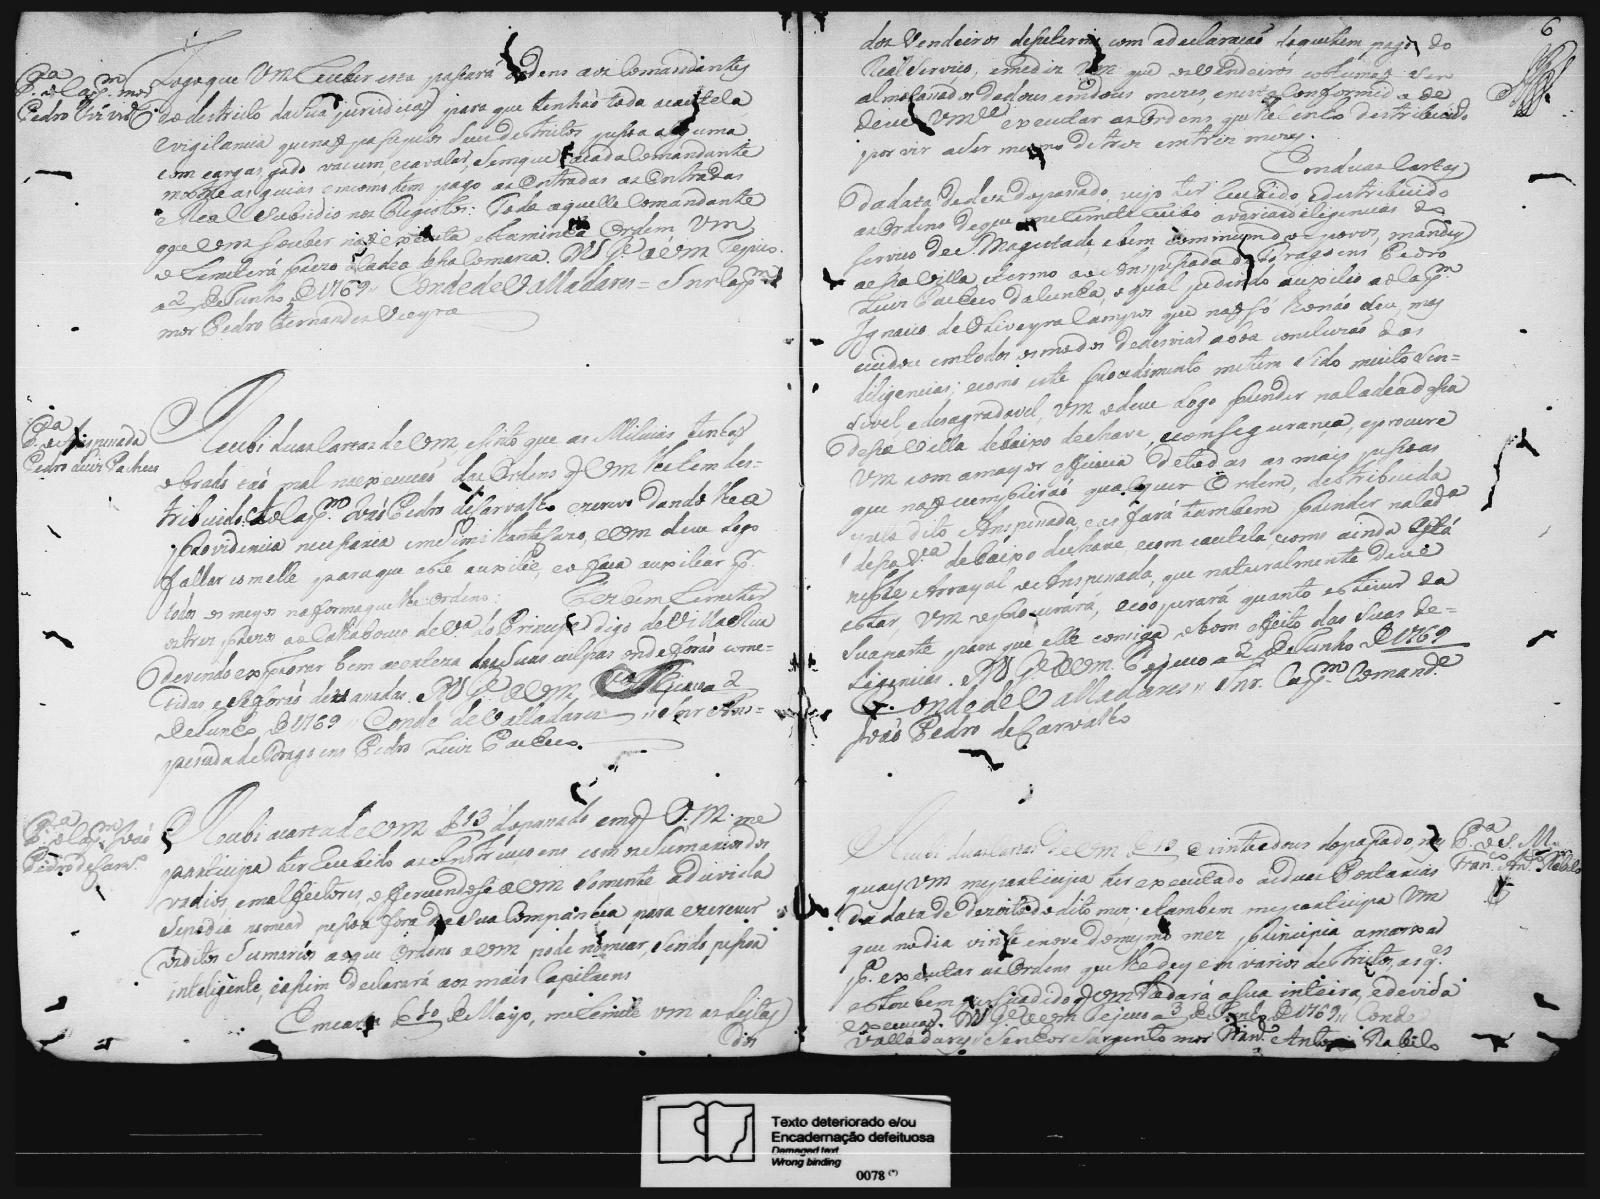 P.a
o Cap.m mor
Pedro Frz' Vr.a
Logo que VM receber esta passará ordens aos Comandantes
do destricto da sua jurisdiçaõ para que tenhaõ toda a cautela
e vigilancia que naõ passe pelos seus destritos pessoa alguma
com cargas, gado vacum, e cavalar, sem que a cada Comandante
mostre as guias em como tem pago as Entradas as Entradas
e Real Subsidio nos Registos: Todo aquelle Comandante
que VM souber naõ executa esta minha Ordem, VM
o remeterá prezo á Cadea desta Comarca. D.s g.e a VM Tejuco
a 2 de Junho D 1769 // Conde de Valladares = Snr Cap.m
mor Pedro Fernandes Vieyra
P.a
o Anspesada
Pedro Luis Pacheco
Recebi duas Cartas de VM, e sinto que as Milicias tenhaõ
obrado taõ mal na execuçaõ das Ordens q VM lhe tem des=
tribuido. Ao Cap.m Joaõ Pedro de Carvalho escrevo dando lhe a
providencia necessaria e mesmo lhante faço, e VM deve logo
fallar com elle para que este auxilie, e o faça auxiliar p.r
todos os meyos na forma que lhe ordeno: Fez bem remeter
os tres prezos ao Calabouço de V.a do Principe digo de Villa Rica
devendo expressar bem a certeza das suas culpas onde foraõ come=
tidas e se foraõ devassadas. D.s g.e a VM Tejuco a 2
de Junho D 1769 // Conde de Valladares // Snr Ans=
pesada de Dragoens Pedro Luis Pacheco.
P.a
o Cap.m Joaõ
Pedro de Carv.o
Recebi a carta de VM de 13 do passado em q V.M. me
participa ter recebido as Instrucçoens com os Sumarios dos
vadios e mal feitores, e offerecendose a VM somente a duvida
se podia nomear pessoa fora da sua Companhia para escrever
os ditos Sumarios ao que Ordeno a VM pode nomear, sendo pessoa
inteligente, e assim declarará aos mais Capitaens
Em carta de 10 de Mayo, me remete VM as listas
dos
6
dos Vendeiros desse termo com a declaraçaõ do que tem pago do
Real Serviço, e me diz VM que os Vendeiros costumaõ ser
almotaçados de dous em dous mezes, e nesta conformid.e
deve VM.ce executar as Ordens, que lhe tenho destribuido
por vir a ser mesmo de tres em tres mezes.
Em duas Cartas
da data de dez do passado, vejo ter recebido e destribuido
as Ordens de que me remete recibo a varias deligencias do
serviço de S. Magestade, e bem commum dos povos, mandey
a essa Villa e termo ao Anspesada de Dragoens Pedro
Luis Pacheco da Cunha, o qual pedindo auxilio ao Cap.m
Ignacio de Oliveyra Campos que naõ só lho naõ deu, mas
cuidou em todos os modos de desviar a boa concluzaõ das
diligencias; e como este procedimento me tem sido muito sen=
sivel e desagradavel, VM o deve logo prender na Cadea dessa
dessa Villa debaixo de chave, e com segurança, e procure
VM com a mayor efficacia de todas as mais pessoas
que naõ cumpriraõ qualquer Ordem, destribuida
pelo dito Anspesada, e as fará tambem prender na Cad.a
dessa V.a debaixo de chave, e com cautela, como ainda está
neste Arrayal o Anspesada, que naturalmente deve
estar VM o procurará, e cooperará quanto estiver da
sua parte para que elle consiga o bom effeito das suas de=
ligencias. D.s g.e a VM Tejuco a 2 de Junho D 1769
Conde de Valladares // Snr. Cap.m Comand.e
Joaõ Pedro de Carvalho
P.a
o S. M.
Fran.co An.to Rabelo
Recebi duas Cartas de VM de 19 e vinte e dous do passado nas
quaes VM me participa ter executado as duas Portarias
da data de dezoito do dito mez; e tambem me participa VM
que no dia vinte e nove do mesmo mez principia a marxar
p.a executar as Ordens que lhe dey em varios destritos, as q.s
estou bem persuadido q VM lhe dará a sua inteira, e devida
execuçaõ. D.s g.e a VM Tejuco a 3 de Junho D 1769 // Conde
Valladares // Senhor Sargento mor Fran.co Antonio Rabelo
Texto deteriorado e/ou
Encadernação defeituosa
Damaged text
Wrong binding
0078 (*)